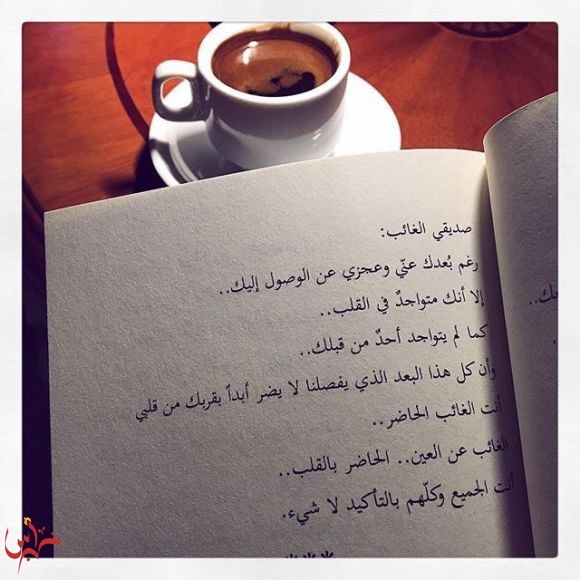 صديقي الغائب:
رغم بُعدك عنّي وعجزي عن الوصول إليك..
إلا أنك متواجدٌ في القلب..
كما لم يتواجد أحدٌ من قبلك..
وأن كل هذا البعد الذي يفصلنا لا يضر أبداً بقربك من قلبي
أنت الغائب الحاضر..
الغائب عن العين.. الحاضر بالقلب..
أنت الجميع وكلّهم بالتأكيد لا شيء.
***